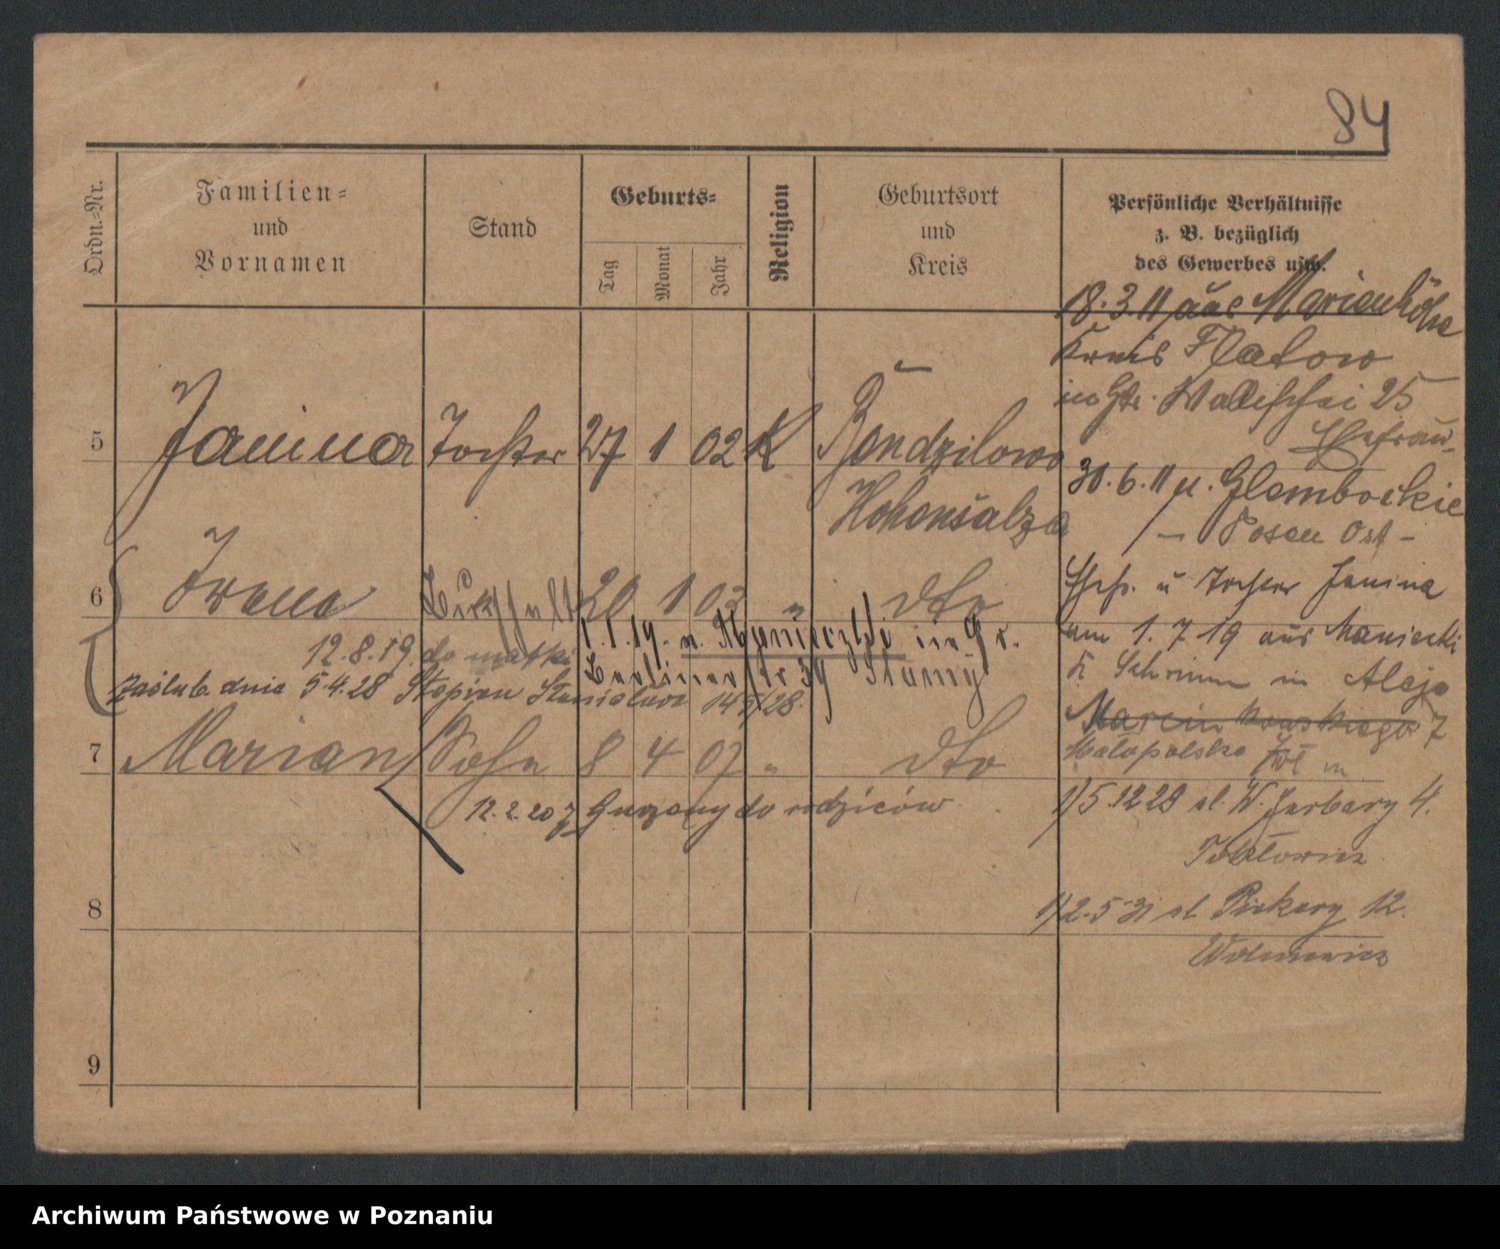 84
Ordn.-Nr.
Familien-
und
Vornamen
Stand
Geburts-
Tag
Monat
Jahr
Religion
Geburtsort
und
Kreis
Persönliche Verhältnisse
z. B. bezüglich
des Gewerbes usw.
18.3.11 aus Marienhöhe
Kreis Flatow
in Gr. Wallischei 25
Ehefrau
5 Janina Tochter 27 1 02 K Bondzilowo
Hohensalza
30.6.11 n. Glembockie
– Posen Ost –
6 Irena 20 1 03 " dto
Ehefr. u Tochter Janina
am 1.7.19 aus Maniecki
K. Schrimm in Aleje
Marcinkowskiego 7
1.1.19. n. in Gr.
12.8.19. do matki Berlinerstr 39
zaślub. dnia 5.4.28 Stepien Stanislaw 14 5/28
7 Marian Sohn 8 4 07 " dto
Małopolska
12.2.20 z do rodziców
1) 5.12.29 ul. W Garbary 4.
8
1) 2.5.31 ul. Piekary 12.
9
Archiwum Państwowe w Poznaniu